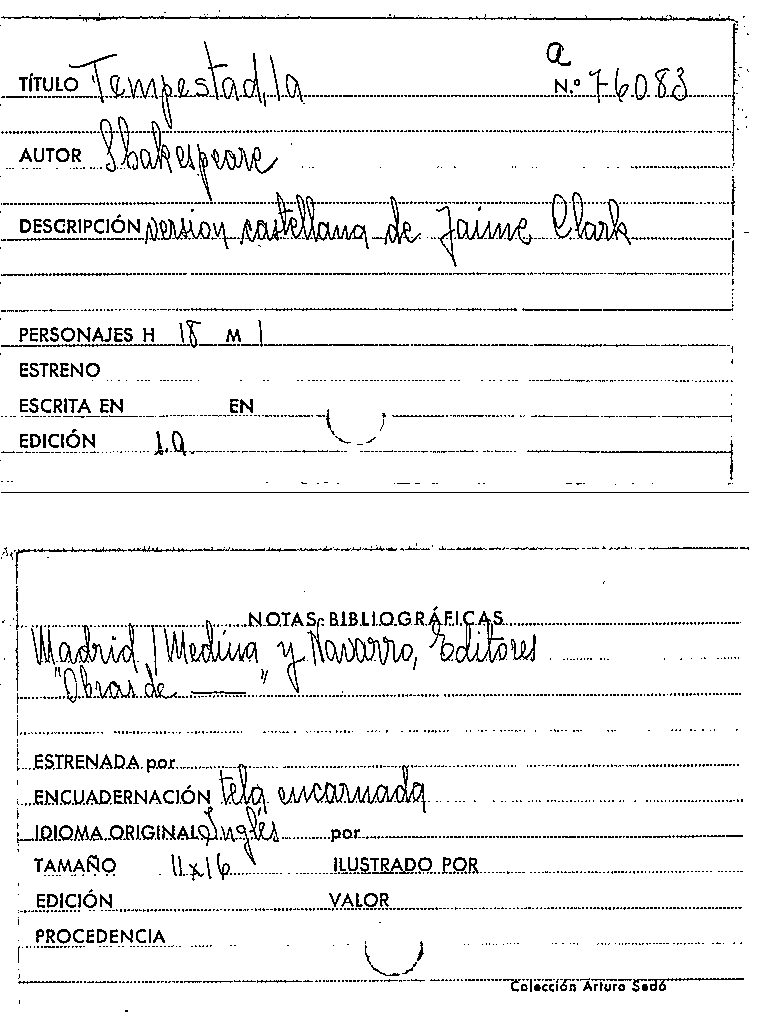 a
TÍTULO Tempestad, la N.º 76083
AUTOR Shakespeare
DESCRIPCIÓN version castellana de Jaime Clark
PERSONAJES H 18 M 1
ESTRENO
ESCRITA EN EN
EDICIÓN 1.a
NOTAS BIBLIOGRÁFICAS
Madrid / Medina y Navarro, Editores
"Obras de —— "
ESTRENADA por
ENCUADERNACIÓN tela encarnada
IDIOMA ORIGINAL Inglés por
TAMAÑO 11x16 ILUSTRADO POR
EDICIÓN VALOR
PROCEDENCIA
Colección Arturo Sedó